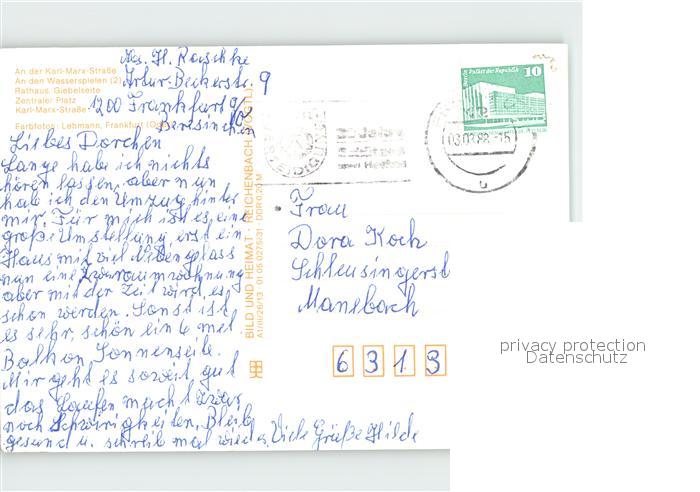 Abs. H. Raschke
Artur-Beckerstr. 9
1200 Frankfurt
Beresinchen
An der Karl-Marx-Straße
An den Wasserspielen (2)
Rathaus, Giebelseite
Zentraler Platz
Karl-Marx-Straße
Farbfotos: Lehmann, Frankfurt
Liebes Dorchen
Lange hab ich nichts
hören lassen, aber nun
hab ich den Umzug hinter
mir. Für mich ist es eine
große Umstellung erst ein
Haus mit viel Nebengelass
nun eine Zweiraumwohnung
aber mit der Zeit wird es
schon werden. Sonst ist
es sehr schön ein 6 met.
Balkon Sonnenseite.
Mir geht es soweit gut
das Laufen macht zwar
noch Schwirigkeiten, Bleib
gesund u. schreib mal wieder, Viele Grüße Hilde
BILD UND HEIMAT · REICHENBACH (VOGTL)
A1/III/26/13 01 05 0275/31 DDR 0,20 M
Palast der Republik
10
-15
Frau
Dora Koch
Schleusingerst
Manebach
6 3 1 3
privacy protection
Datenschutz